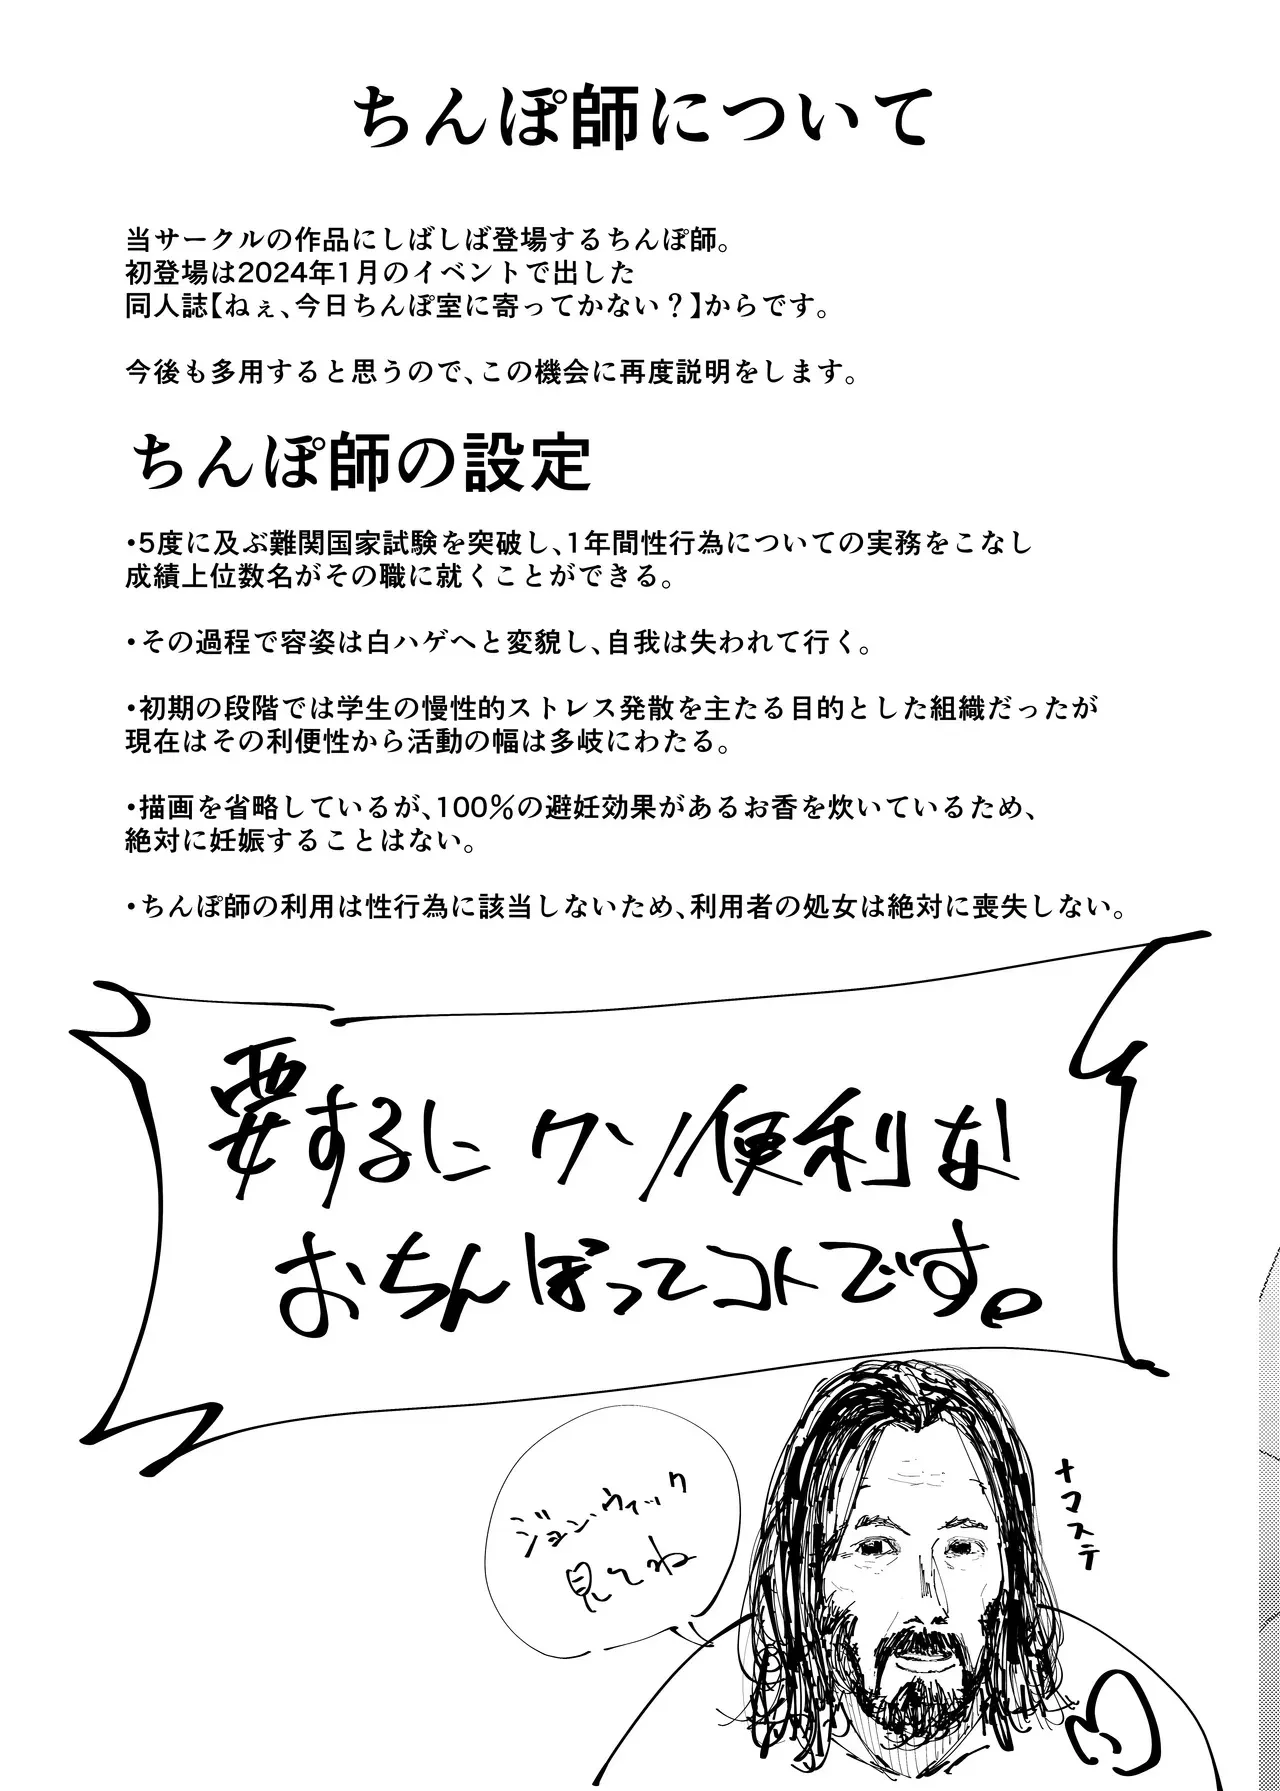 ちんぽ師について
当サークルの作品にしばしば登場するちんぽ師。
初登場は2024年1月のイベントで出した
同人誌【ねぇ、今日ちんぽ室に寄ってかない？】からです。
今後も多用すると思うので、この機会に再度説明をします。
ちんぽ師の設定
・5度に及ぶ難関国家試験を突破し、1年間性行為についての実務をこなし
成績上位数名がその職に就くことができる。
・その過程で容姿は白ハゲへと変貌し、自我は失われて行く。
・初期の段階では学生の慢性的ストレス発散を主たる目的とした組織だったが
現在はその利便性から活動の幅は多岐にわたる。
・描画を省略しているが、100%の避妊効果があるお香を炊いているため、
絶対に妊娠することはない。
・ちんぽ師の利用は性行為に該当しないため、利用者の処女は絶対に喪失しない。
要するにクソ便利な
おちんぽってコトです。
ジョン・ウィック
見てね
ナマステ